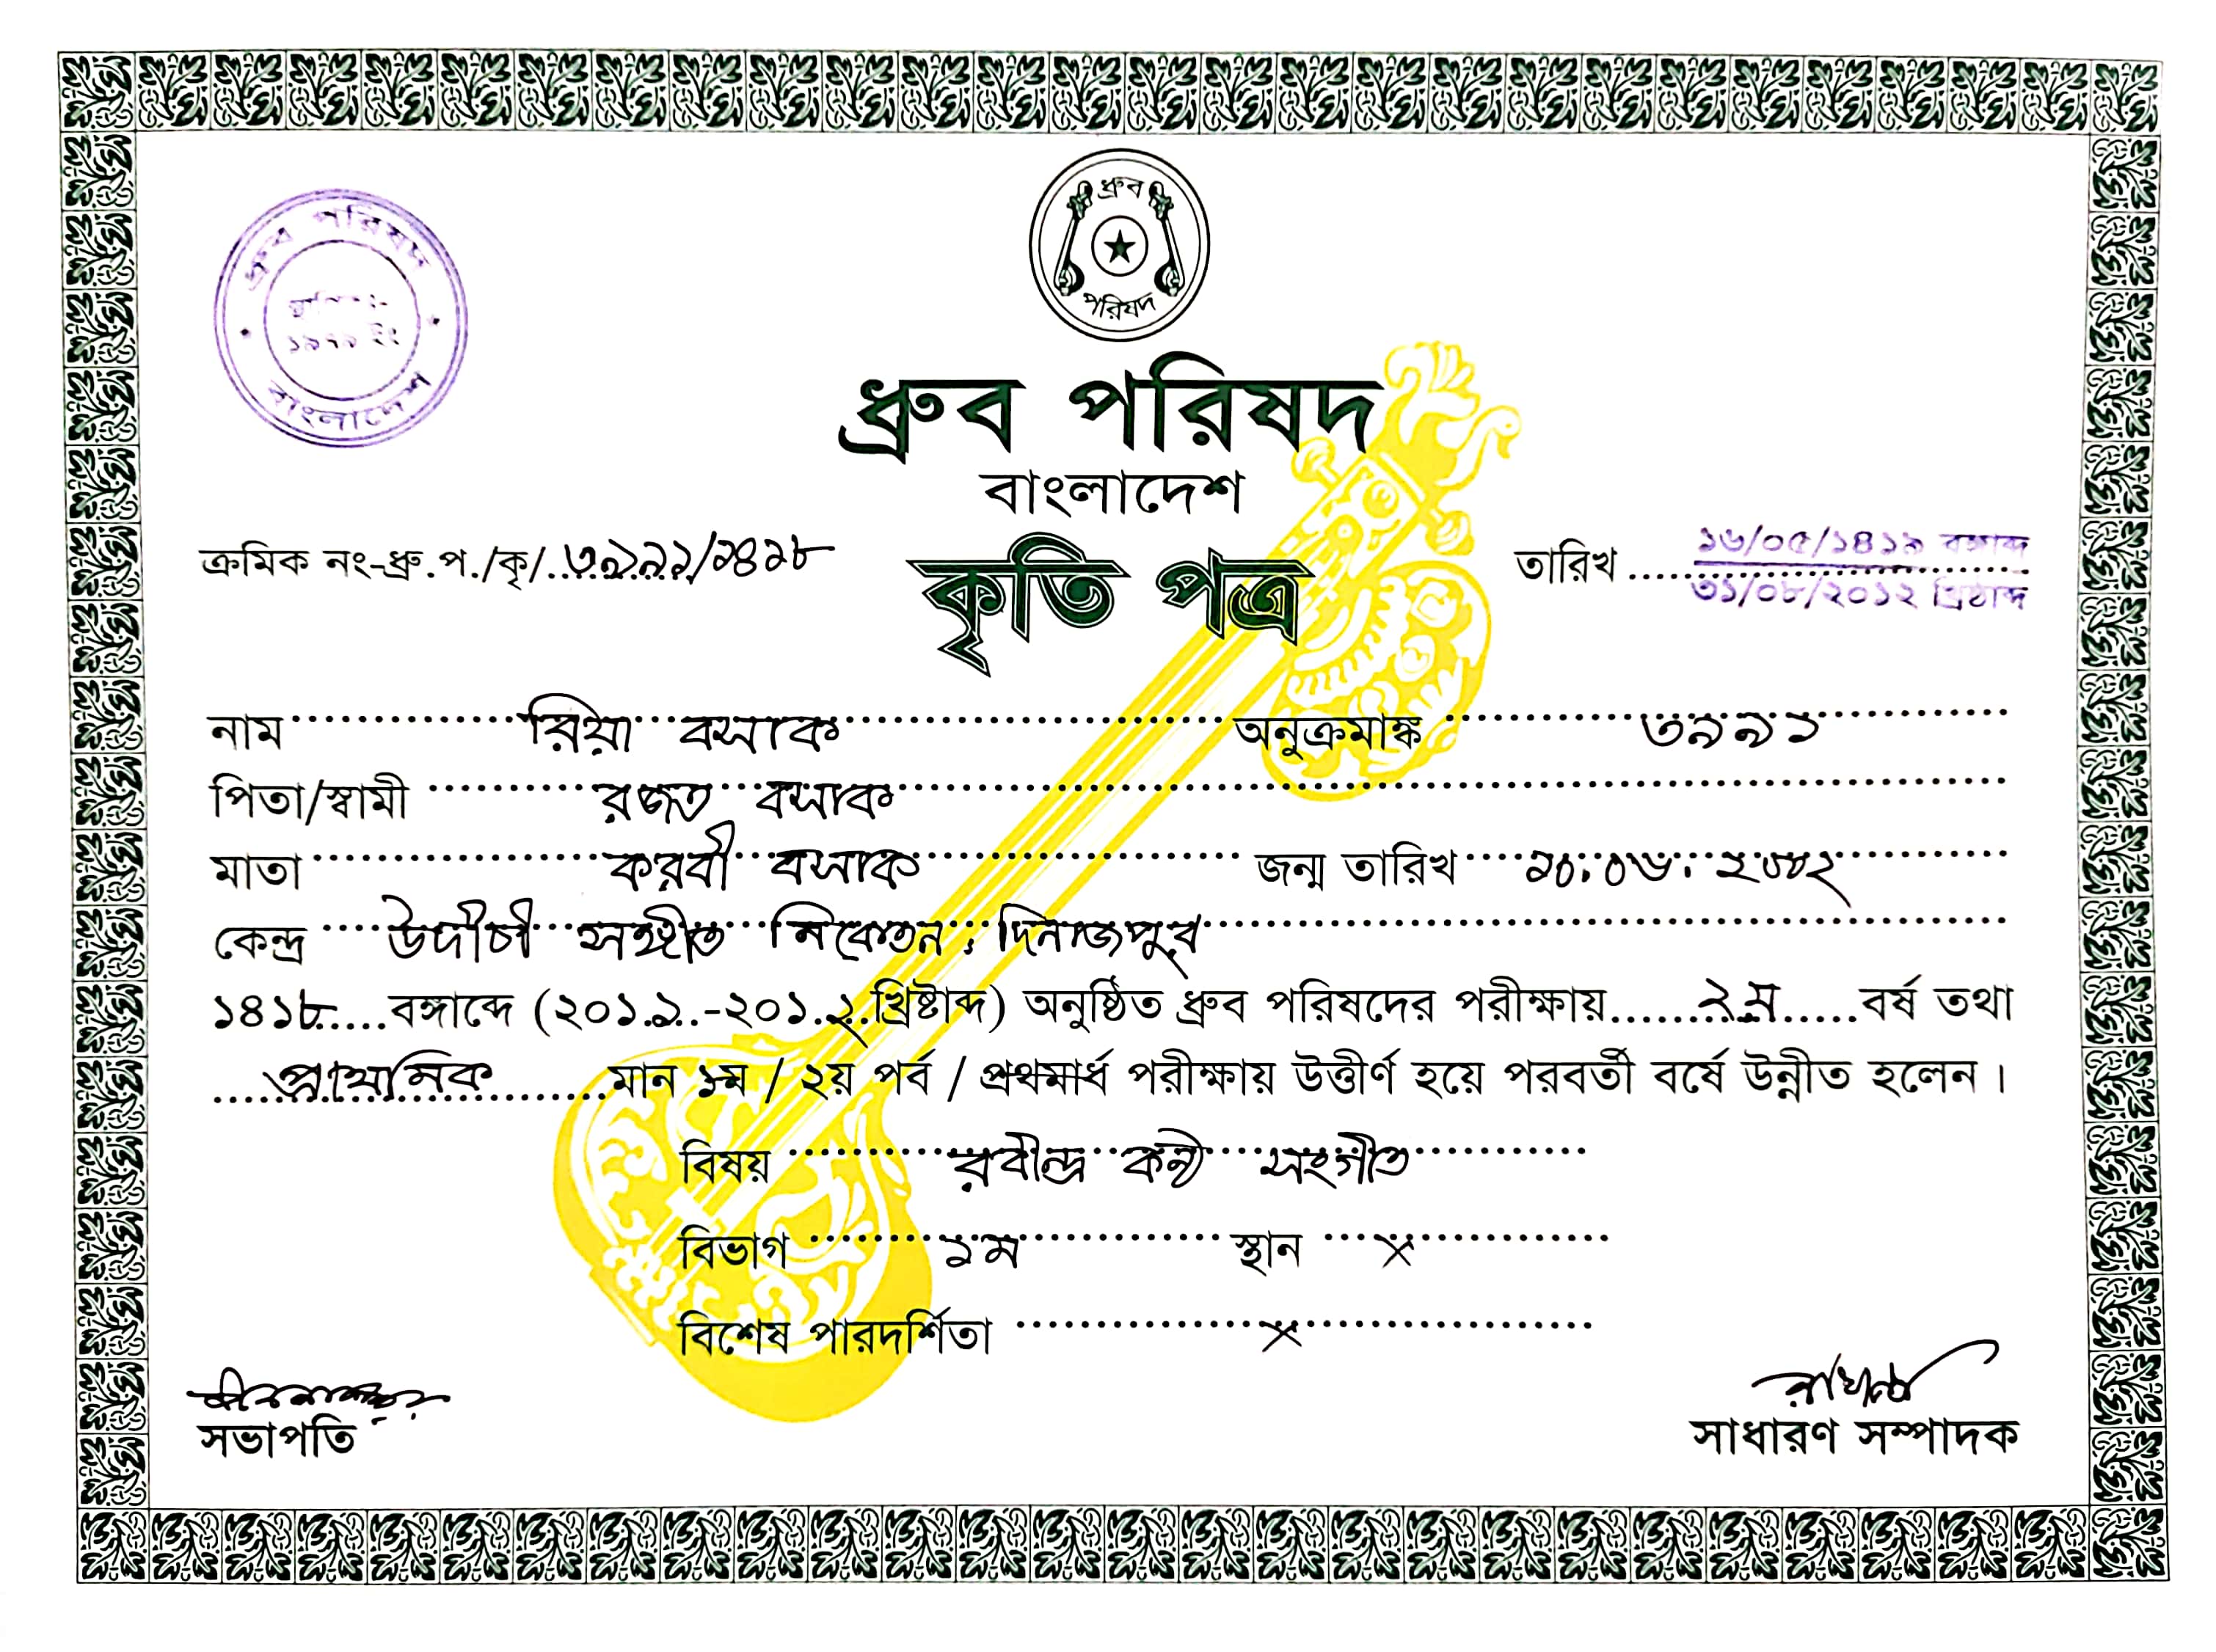 ধ্রুব
পরিষদ
ধ্রুব পরিষদ
১৯৭৯ ইং
বাংলাদেশ
ধ্রুব পরিষদ
বাংলাদেশ
ক্রমিক নং-ধ্রু.প./কৃ/.৩৯৯১/১৪১৮
কৃতি পত্র
তারিখ ১৬/০৫/১৪১৯ বঙ্গাব্দ
৩১/০৮/২০১২ খ্রিষ্টাব্দ
নাম রিয়া বসাক অনুক্রমাঙ্ক ৩৯৯১
পিতা/স্বামী রজত বসাক
মাতা করবী বসাক জন্ম তারিখ ১০.০৬.২০০২
কেন্দ্র উদীচী সঙ্গীত নিকেতন, দিনাজপুর
১৪১৮.....বঙ্গাব্দে (২০১১-২০১২ খ্রিষ্টাব্দ) অনুষ্ঠিত ধ্রুব পরিষদের পরীক্ষায়......১ম.....বর্ষ তথা
প্রাথমিক মান ১ম / ২য় পর্ব / প্রথমার্ধ পরীক্ষায় উত্তীর্ণ হয়ে পরবর্তী বর্ষে উন্নীত হলেন।
বিষয় রবীন্দ্র কন্ঠ সংগীত
বিভাগ ১ম স্থান ×
বিশেষ পারদর্শিতা ×
সভাপতি
সাধারণ সম্পাদক